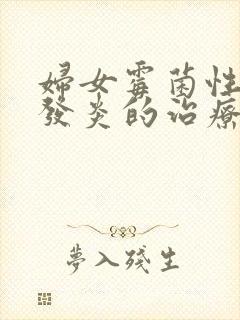 婦女霉菌性
發炎的治療
夢入殘生